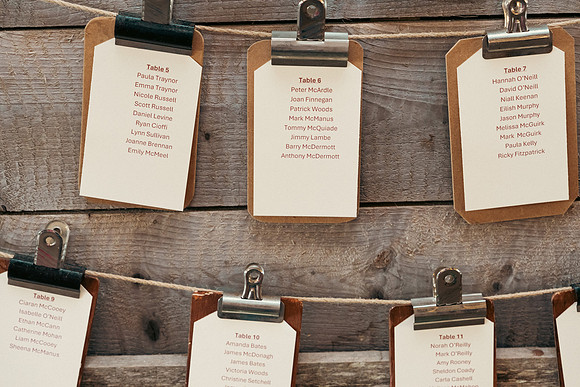 Table 5
Paula Traynor
Emma Traynor
Nicole Russell
Scott Russell
Daniel Levine
Ryan Cioffi
Lynn Sullivan
Joanne Brennan
Emily McMeet
Table 6
Peter McArdle
Joan Finnegan
Patrick Woods
Mark McManus
Tommy McQuade
Jimmy Lambe
Barry McDermott
Anthony McDermott
Table 7
Hannah O'Neill
David O'Neill
Niall Keenan
Eiliah Murphy
Jason Murphy
Melissa McGuirk
Mark McGuirk
Paula Kelly
Ricky Fitzpatrick
Table 9
Ciaran McCooey
Isabelle O'Neill
Ethan McCann
Catherine Mohan
Liam McCooey
Sheena McManus
Table 10
Amanda Bates
James McDonagh
James Bates
Victoria Woods
Christine Setchell
Table 11
Norah O'Reilly
Mark O'Reilly
Amy Rooney
Sheldon Coady
Carla Cashell